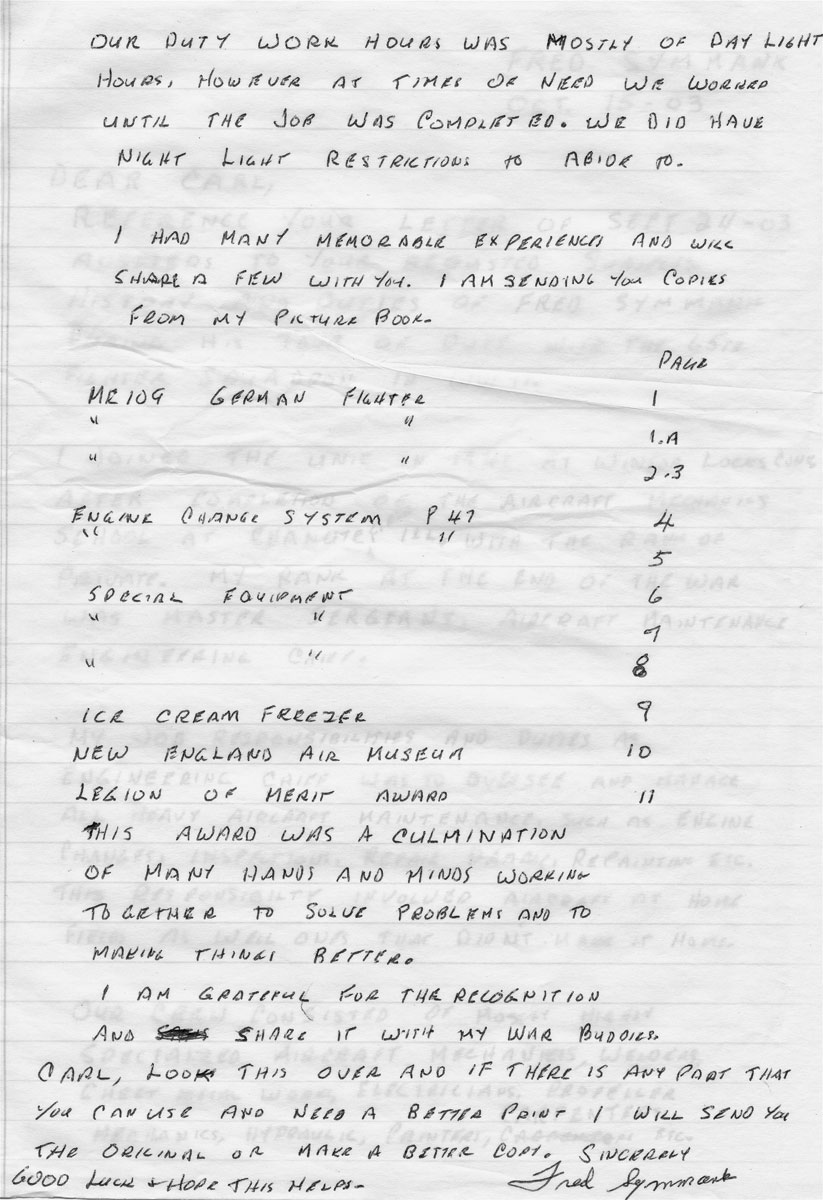 OUR DUTY WORK HOURS WAS MOSTLY OF DAY LIGHT
HOURS, HOWEVER AT TIMES OF NEED WE WORKED
UNTIL THE JOB WAS COMPLETED. WE DID HAVE
NIGHT LIGHT RESTRICTIONS to ABIDE to.
I HAD MANY MEMORABLE EXPERIENCES AND WILL
SHARE A FEW WITH YOU. I AM SENDING YOU COPIES
FROM MY PICTURE BOOK.
PAGE
ME 109 GERMAN FIGHTER 1
" " 1.A
" " 2.3
ENGINE CHANGE SYSTEM P 47 4
" " 5
SPECIAL EQUIPMENT 6
" " 7
" " 8
ICE CREAM FREEZER 9
NEW ENGLAND AIR MUSEUM 10
LEGION OF MERIT AWARD 11
THIS AWARD WAS A CULMINATION
OF MANY HANDS AND MINDS WORKING
TOGETHER to SOLVE PROBLEMS AND TO
MAKING THINGS BETTER.
I AM GRATEFUL FOR THE RECOGNITION
AND SHARE IT WITH MY WAR BUDDIES.
CARL, LOOK THIS OVER AND IF THERE IS ANY PART THAT
YOU CAN USE AND NEED A BETTER PRINT I WILL SEND YOU
THE ORIGINAL OR MAKE A BETTER COPY. SINCERELY
GOOD LUCK & HOPE THIS HELPS- Fred Symmank